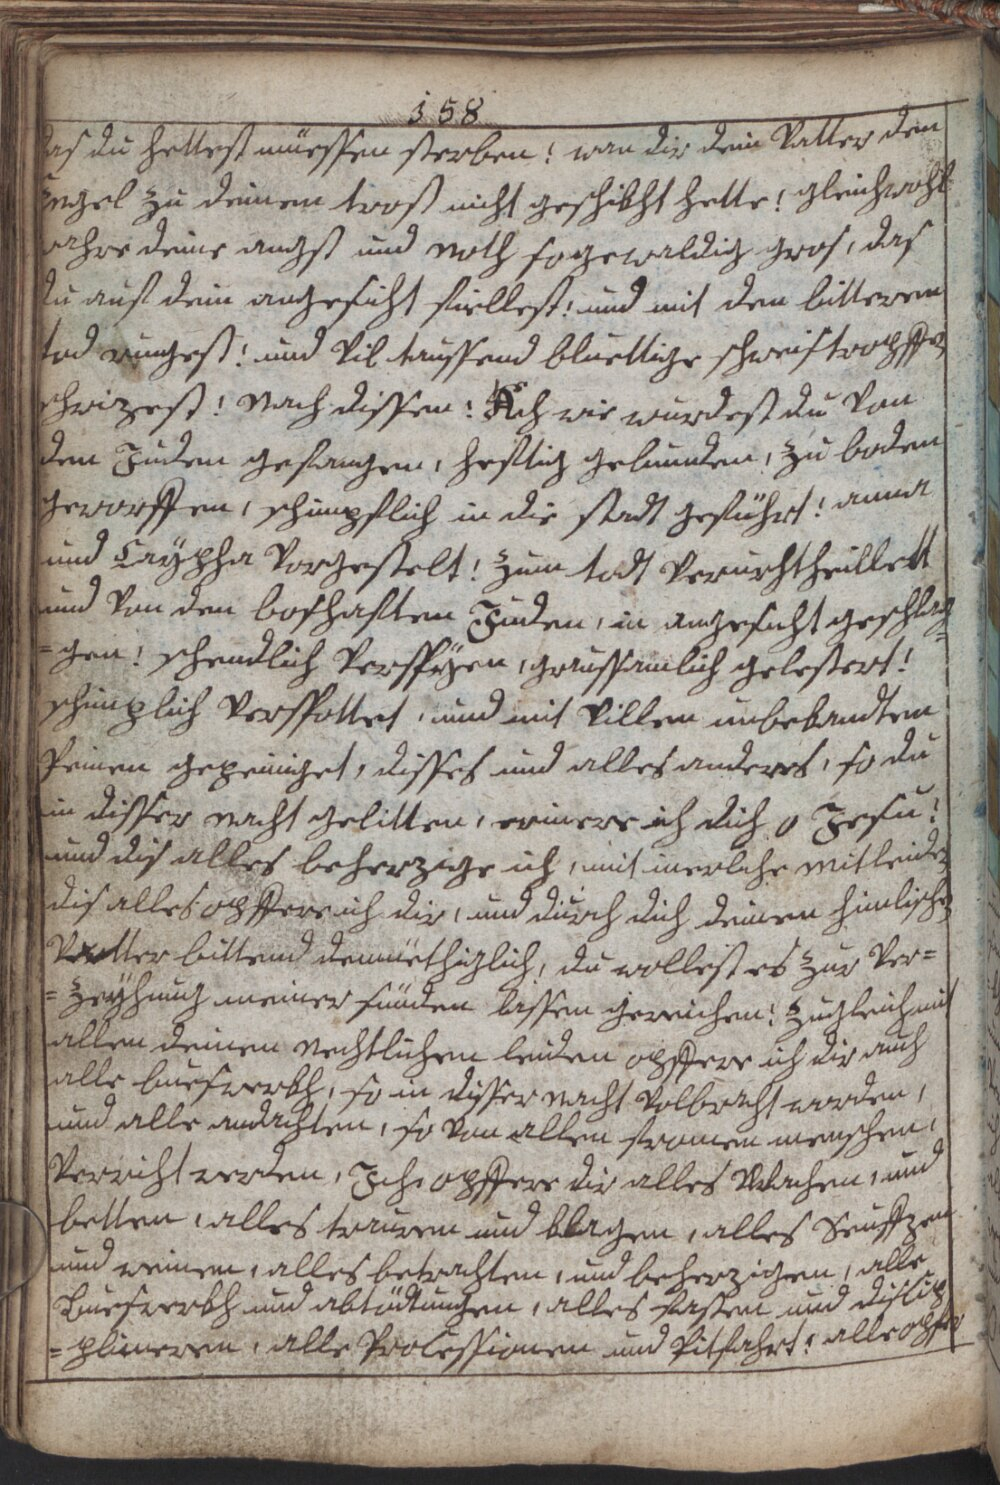 158
das du hettest müessen sterben! wan dir dein Vatter den
Engel zu deinem trost nicht geschikht hette! gleichwohl
wahre deine angst und noth so gewaldig gros, das
du auf dein angesicht fiellest! und mit dem bitteren
tod rungest! und vil taussend bluettige schweistropffen
schwizest! Nach dissen! Ach wie wurdest du von
den Juden gefangen, hefftig gebunden, zu boden
geworffen, schimpflich in die stadt geführt! anna
und Caÿpha vorgestelt! zum todt verurtheillett
und von den boshaften Juden, in angesicht geschlag
=gen! schendlich verspÿen, graussamlich gelestert!
schimplich verspottet, und mit villen unbekandten
Peinen gepeiniget, disses und alles anderes, so du
in disser nacht gelitten, erinere ich dich o Jesu!
und dis alles beherzige ich, mit inerliche mitleiden
dis alles opffere ich dir, und durch dich deinem himlischen
Vatter bittend demüethiglich, du wollest es zur Ver=
=zeÿhung meiner sünden lassen gereichen! zugleich mit
allen deinem nechtlichen leiden opffere ich dir auch
alle bueswerkh, so in disser nacht volbracht worden,
und alle andachten, so von allen fromen menschen,
verricht werden, Ich opffere dir alles Wachen, und
betten, alles trauren und klagen, alles Seufftzen
und weinen, alles betrachten, und beherzigen, alle
Buesswerkh und abtödtungen, alles fasten und discip
=plineren, alle Processionen und Pitfahrt! alle opffer